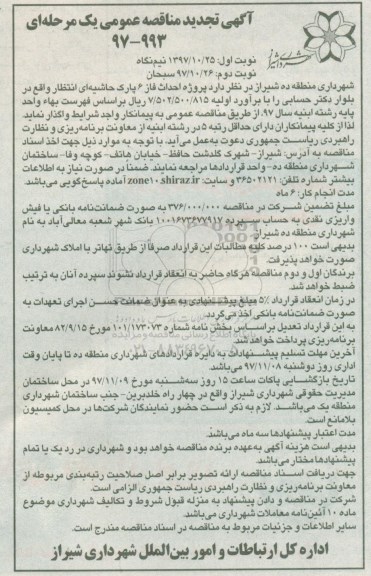 آگهی تجدید مناقصه عمومی یک مرحله‌ای
۹۷-۹۹۳
نوبت اول: ۱۳۹۷/۱۰/۲۵ نیم‌نگاه
نوبت دوم: ۹۷/۱۰/۲۶ سبحان
شهرداری منطقه ده شیراز در نظر دارد پروژه احداث فاز ۶ پارک حاشیه‌ای انتظار واقع در
بلوار دکتر حسابی را با برآورد اولیه ۷/۵۰۲/۵۰۰/۸۱۵ ریال براساس فهرست بهاء واحد
پایه رشته ابنیه سال ۹۷، از طریق مناقصه عمومی به پیمانکار واجد شرایط واگذار نماید.
لذا از کلیه پیمانکاران دارای حداقل رتبه ۵ در رشته ابنیه از معاونت برنامه‌ریزی و نظارت
راهبردی ریاست جمهوری دعوت به‌عمل می‌آید، با توجه به موارد ذیل جهت اخذ اسناد
مناقصه به آدرس: شیراز- شهرک گلدشت حافظ- خیابان هاتف- کوچه وفا- ساختمان
شهرداری منطقه ده- واحد قراردادها مراجعه نمایند. ضمناً در صورت نیاز به اطلاعات
بیشتر شماره تلفن: ۳۶۵۰۲۱۲۱ و سایت: zone10.shiraz.ir آماده پاسخ‌گویی می‌باشد.
مدت انجام کار: ۶ ماه
مبلغ تضمین شرکت در مناقصه ۳۷۶/۰۰۰/۰۰۰ به صورت ضمانت‌نامه بانکی یا فیش
واریزی نقدی به حساب سپرده ۱۰۰۱۶۷۳۶۷۷۹۱۷ بانک شهر شعبه معالی‌آباد به نام
شهرداری منطقه ده شیراز
بدیهی است ۱۰۰ درصد کلیه مطالبات این قرارداد صرفاً از طریق تهاتر با املاک شهرداری
صورت خواهد پذیرفت.
برندگان اول و دوم مناقصه هرگاه حاضر به انعقاد قرارداد نشوند سپرده آنان به ترتیب
ضبط خواهد شد.
در زمان انعقاد قرارداد ۵٪ مبلغ پیشنهادی به عنوان ضمانت حسن اجرای تعهدات به
صورت ضمانت‌نامه بانکی اخذ می‌گردد.
به این قرارداد تعدیل براساس بخش نامه شماره ۱۰۱/۱۷۳۰۷۳ مورخ ۸۲/۹/۱۵ معاونت
برنامه‌ریزی پرداخت خواهد شد.
آخرین مهلت تسلیم پیشنهادات به دایره قراردادهای شهرداری منطقه ده تا پایان وقت
اداری روز دوشنبه ۹۷/۱۱/۰۸ می‌باشد.
تاریخ بازگشایی پاکات ساعت ۱۵ روز سه‌شنبه مورخ ۹۷/۱۱/۰۹ در محل ساختمان
مدیریت حقوقی شهرداری شیراز واقع در چهار راه خلدبرین- جنب ساختمان شهرداری
منطقه یک می‌باشد. لازم به ذکر است حضور نمایندگان شرکت‌ها در محل کمیسیون
بلامانع است.
مدت اعتبار پیشنهادها سه ماه می‌باشد.
بدیهی است هزینه آگهی به‌عهده برنده مناقصه خواهد بود و شهرداری در رد یک یا تمام
پیشنهادها مختار می‌باشد.
جهت دریافت اسناد مناقصه ارائه تصویر برابر اصل صلاحیت رتبه‌بندی مربوطه از
معاونت برنامه‌ریزی و نظارت راهبردی ریاست جمهوری الزامی است.
شرکت در مناقصه و دادن پیشنهاد به منزله قبول شروط و تکالیف شهرداری موضوع
ماده ۱۰ آئین‌نامه معاملات شهرداری می‌باشد.
سایر اطلاعات و جزئیات مربوط به مناقصه در اسناد مناقصه مندرج است.
اداره کل ارتباطات و امور بین‌الملل شهرداری شیراز